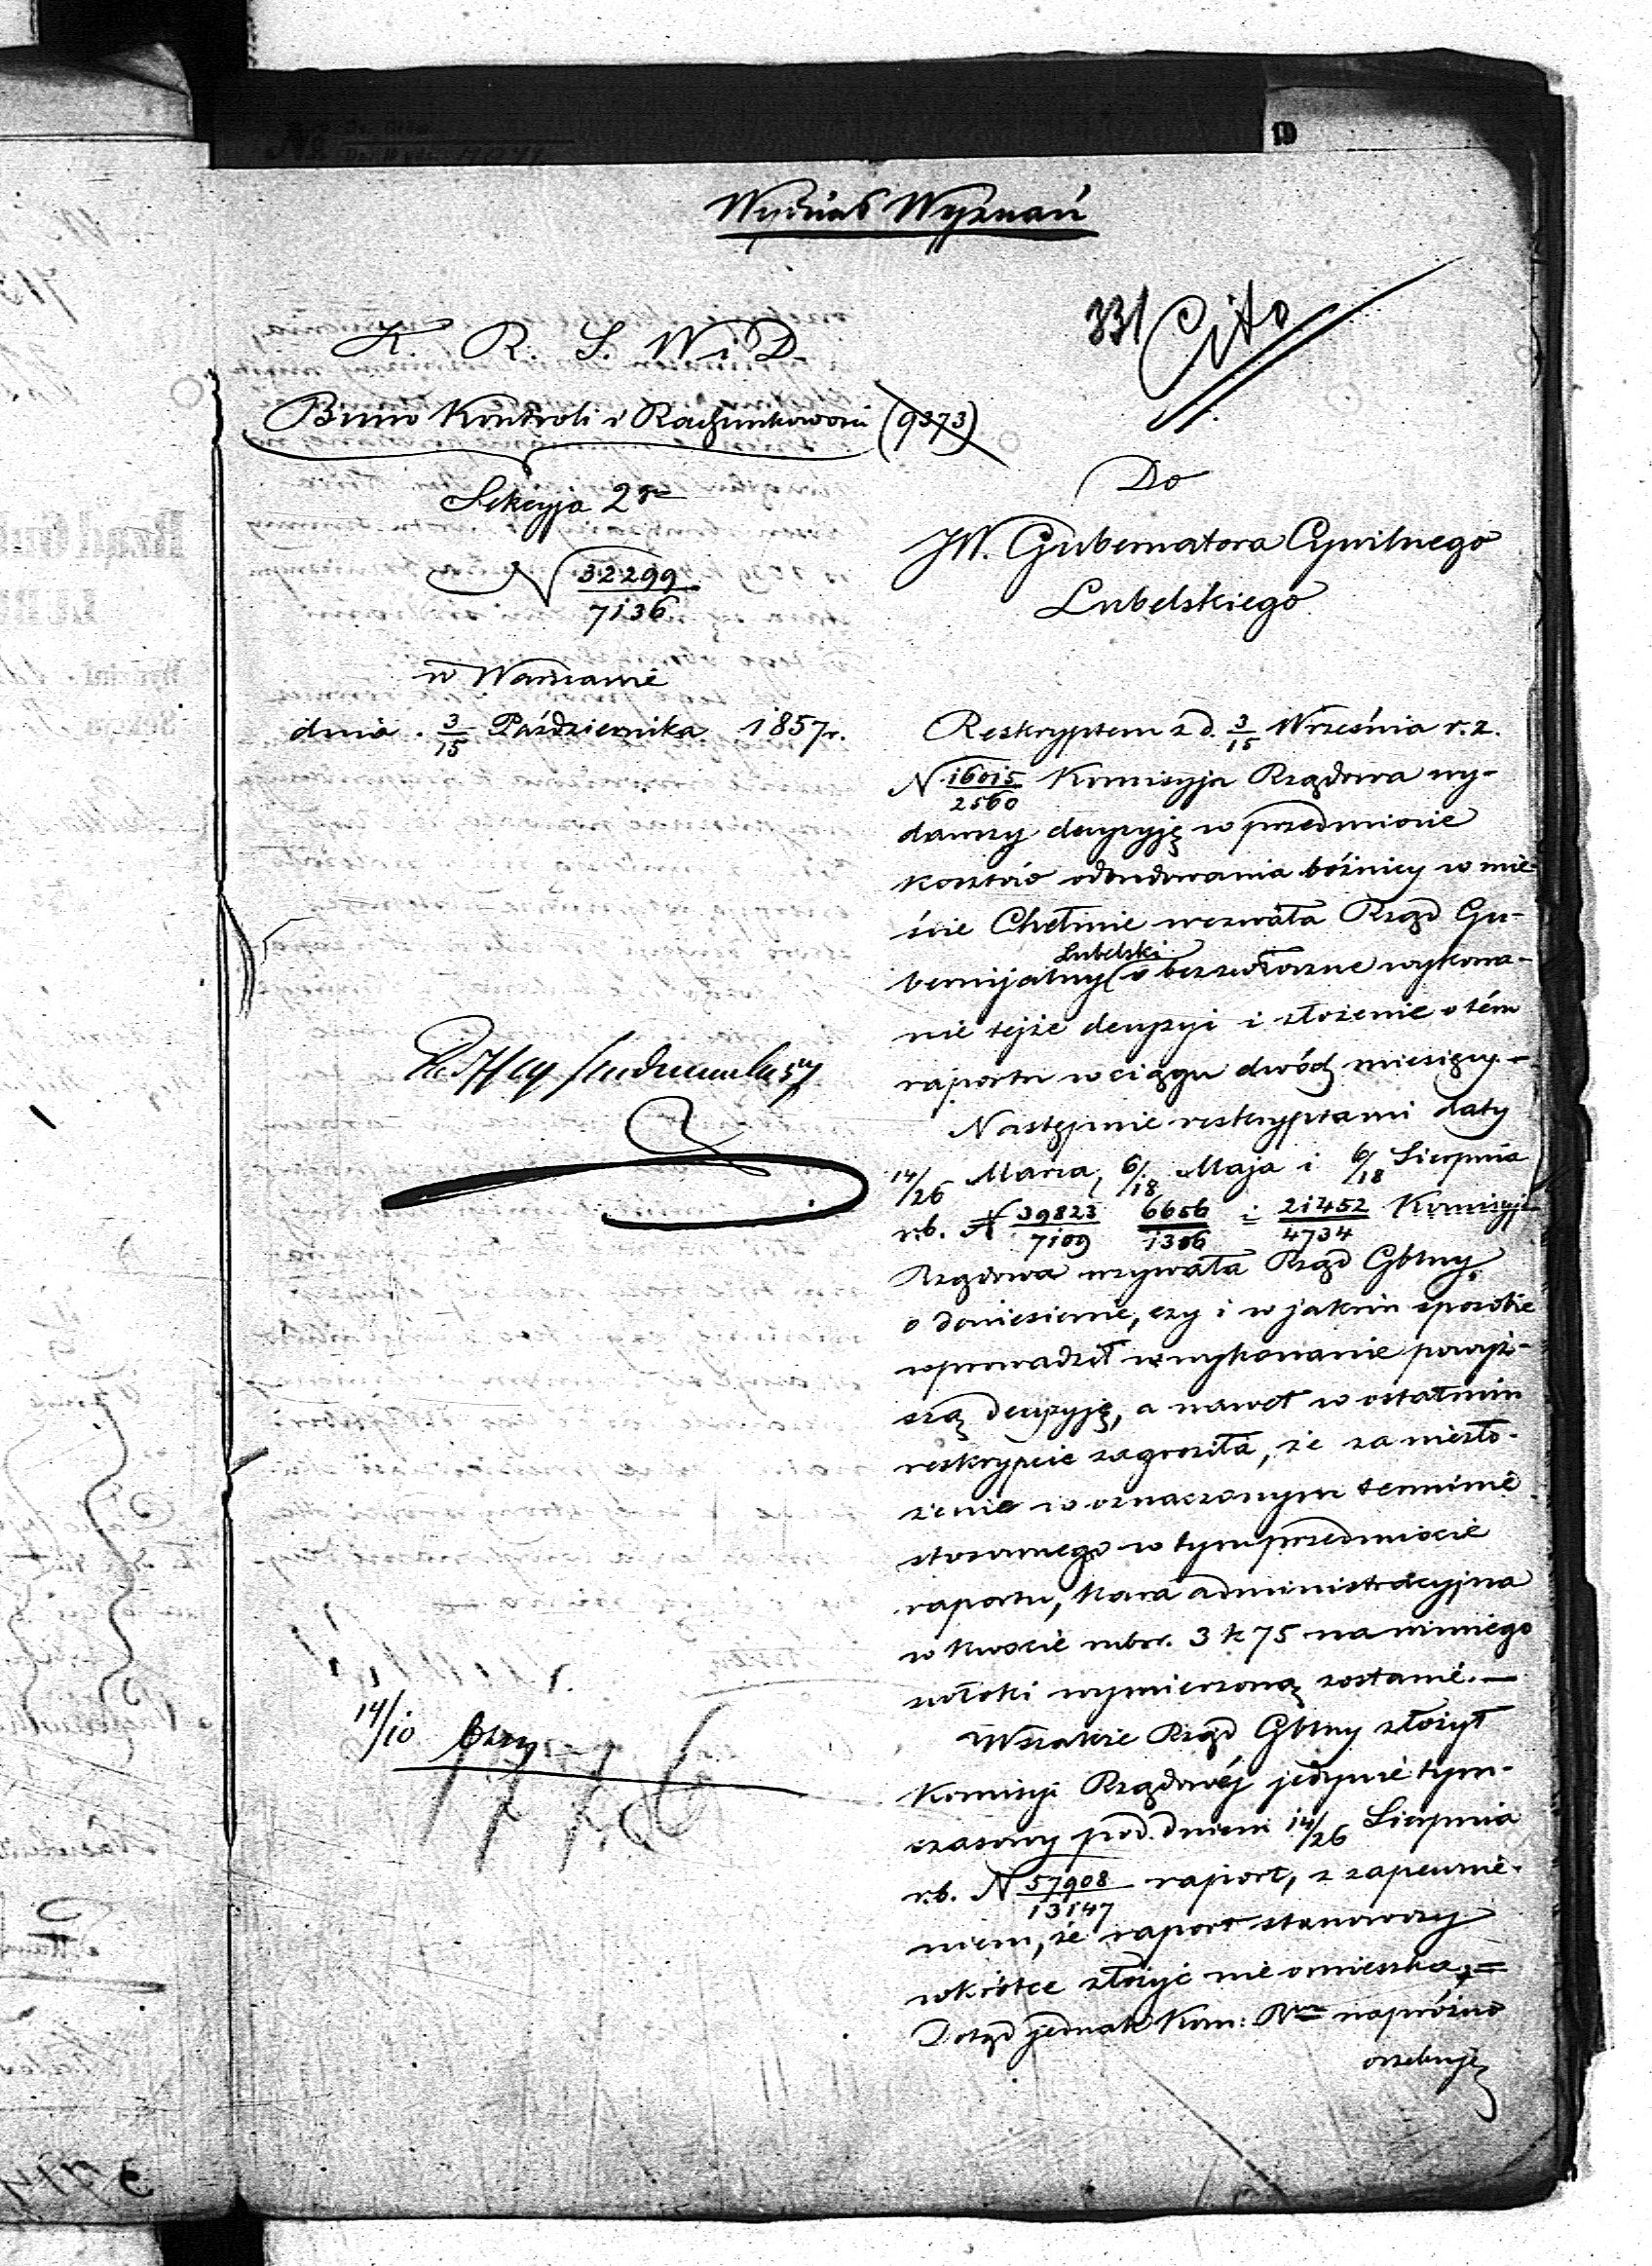 19
Wydział Wyznań
331 Cito
K. R. S. W i D.
Biuro Kontroli i Rachunkowości (9373)
Sekcyja 2ga
N 32299/7136
w Warszawie
dnia 3/15 Października 1857 r.
Do
JW. Gubernatora Cywilnego
Lubelskiego
Reskryptem z d. 3/15 Września r. z.
N 16015/2560 Kommissyja Rządowa wy-
dawszy decyzyję w przedmiocie
kosztów odbudowania bóżnicy w mie-
ście Chełmie wezwała Rząd Gu-
bernijalny Lubelski o bezzwłoczne wykona-
nie tejże decyzyi i złożenie o tém
raportu w ciągu dwóch miesięcy.–
Następnie reskryptami daty
14/26 Marca, 6/18 Maja i 6/18 Sierpnia
r.b. N 39823/7109 6656/1306 i 21452/4734 Komissyja
Rządowa wzywała Rząd Gblny,
o doniesienie, czy i w jakim sposobie
wprowadził w wykonanie powyż-
szą decyzyję, a nawet w ostatnim
reskrypcie zagroziła, że za niezło-
żenie w oznaczonym terminie
stosownego w tym przedmiocie
raportu, kara administracyjna
w kwocie rubsr. 3 k 75 na winnego
zwłoki wymierzoną zostanie.—
Wszakże Rząd Gblny złożył
Komissyi Rządowéj jedynie tym-
czasowy pod dniem 14/26 Sierpnia
r.b. N 57908/13147 raport, z zapewnie-
niem, że raport stanowczy
wkrótce złożyć nie omieszka,=
Dotąd jednak Kom: Rwa napróżno
oczekuje
14/10